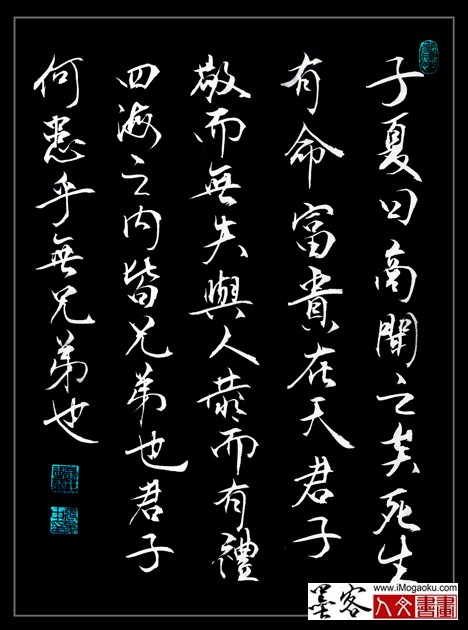 子夏曰商聞之矣死生
有命富貴在天君子
敬而無失與人恭而有禮
四海之内皆兄弟也君子
何患乎無兄弟也
www.iMogaoku.com
墨客
人文書畫